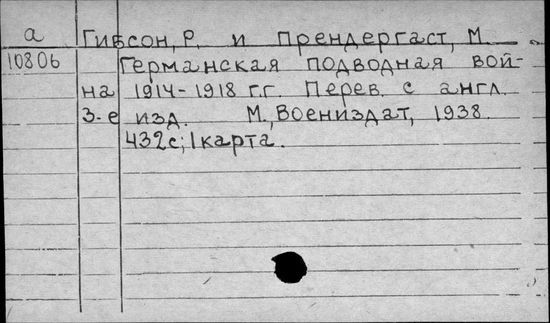 а Гибсон, Р. и Прендергаст, М.
10806 Германская подводная вой-
на 1914-1918 г.г. Перев. с англ.
3-е изд. М., Воениздат, 1938.
432с; 1 карта.